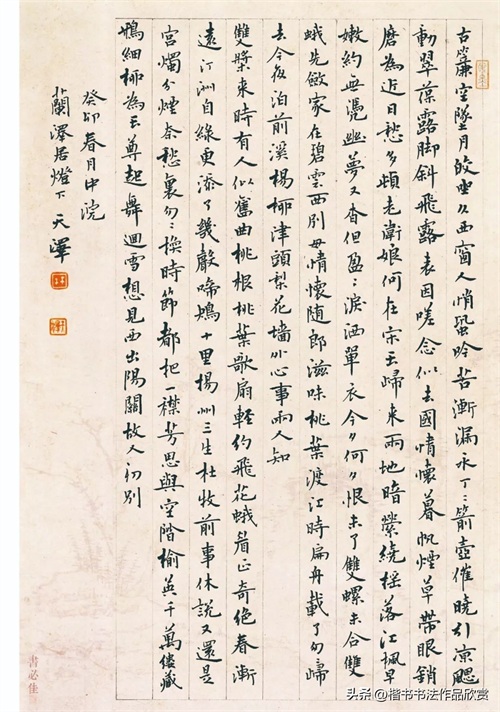 古簾空墜月皎坐久西窗人悄蛩吟苦漸漏永丁〻箭壺催曉引涼颸
動翠葆露脚斜飛露表因嗟念似去國情懷暮帆煙草帶眼銷
磨為近日愁多頓老衛娘何在宋玉歸來兩地暗縈繞摇落江楓早
嫩約無憑幽夢又杳但盈〻淚洒單衣今夕何夕恨未了雙螺未合雙
蛾先斂家在碧雲西別母情懷随郎滋味桃葉渡江時扁舟載了匆歸
去今夜泊前溪楊柳津頭梨花墙外心事兩人知
雙槳來時有人似舊曲桃根桃葉歌扇輕約飛花蛾眉正奇絕春漸
遠汀洲自緑更添了幾聲啼鴂十里揚州三生杜牧前事休說又還是
宫燭分煙奈愁裏匆〻換時節都把一襟芳思與空階榆莢千萬縷藏
鴉細柳為玉尊起舞迴雪想見西出陽關故人初別
癸卯春月中浣
蘭澤居燈下天澤
書必佳
头条@楷书书法作品欣赏